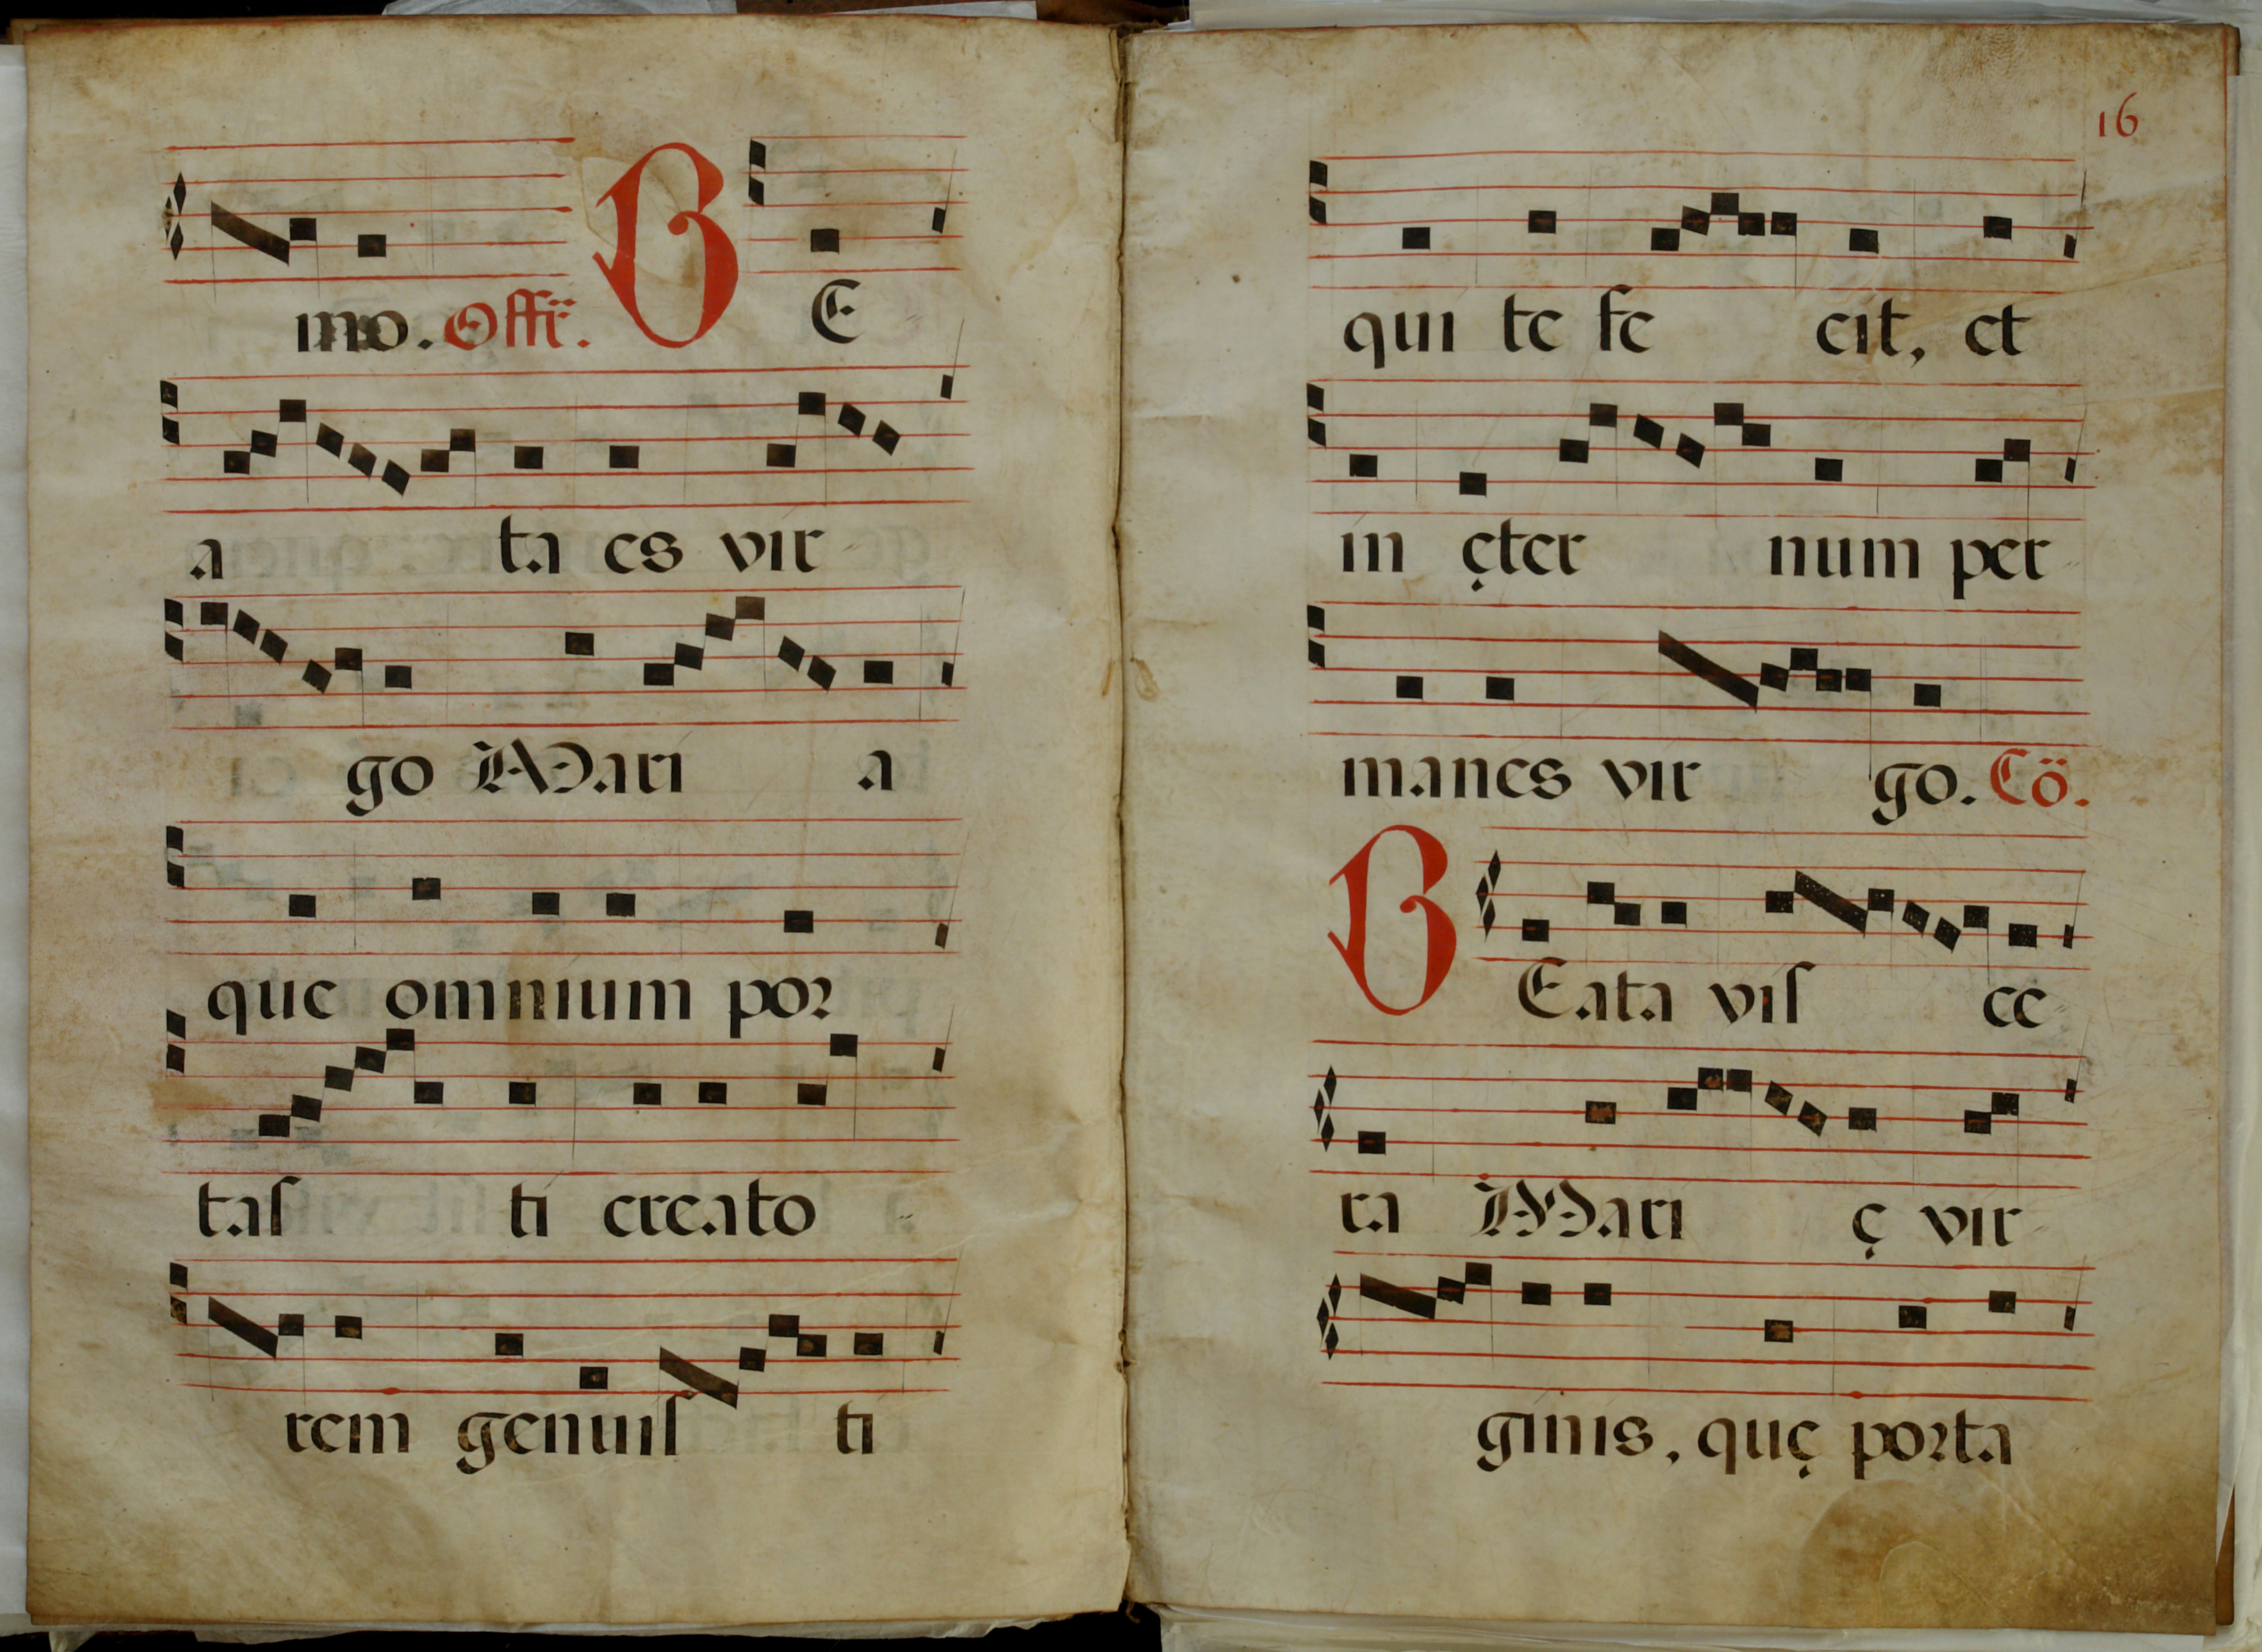 mo. Offr̈. B E
a ta es vir-
go Mari a
que omnium por
tas ti creato-
rem genuis ti
16
qui te fe cit, et
in ęter num per-
manes vir go. Cö.
BEata vis ce-
ra Mari ę vir-
ginis, quę porta